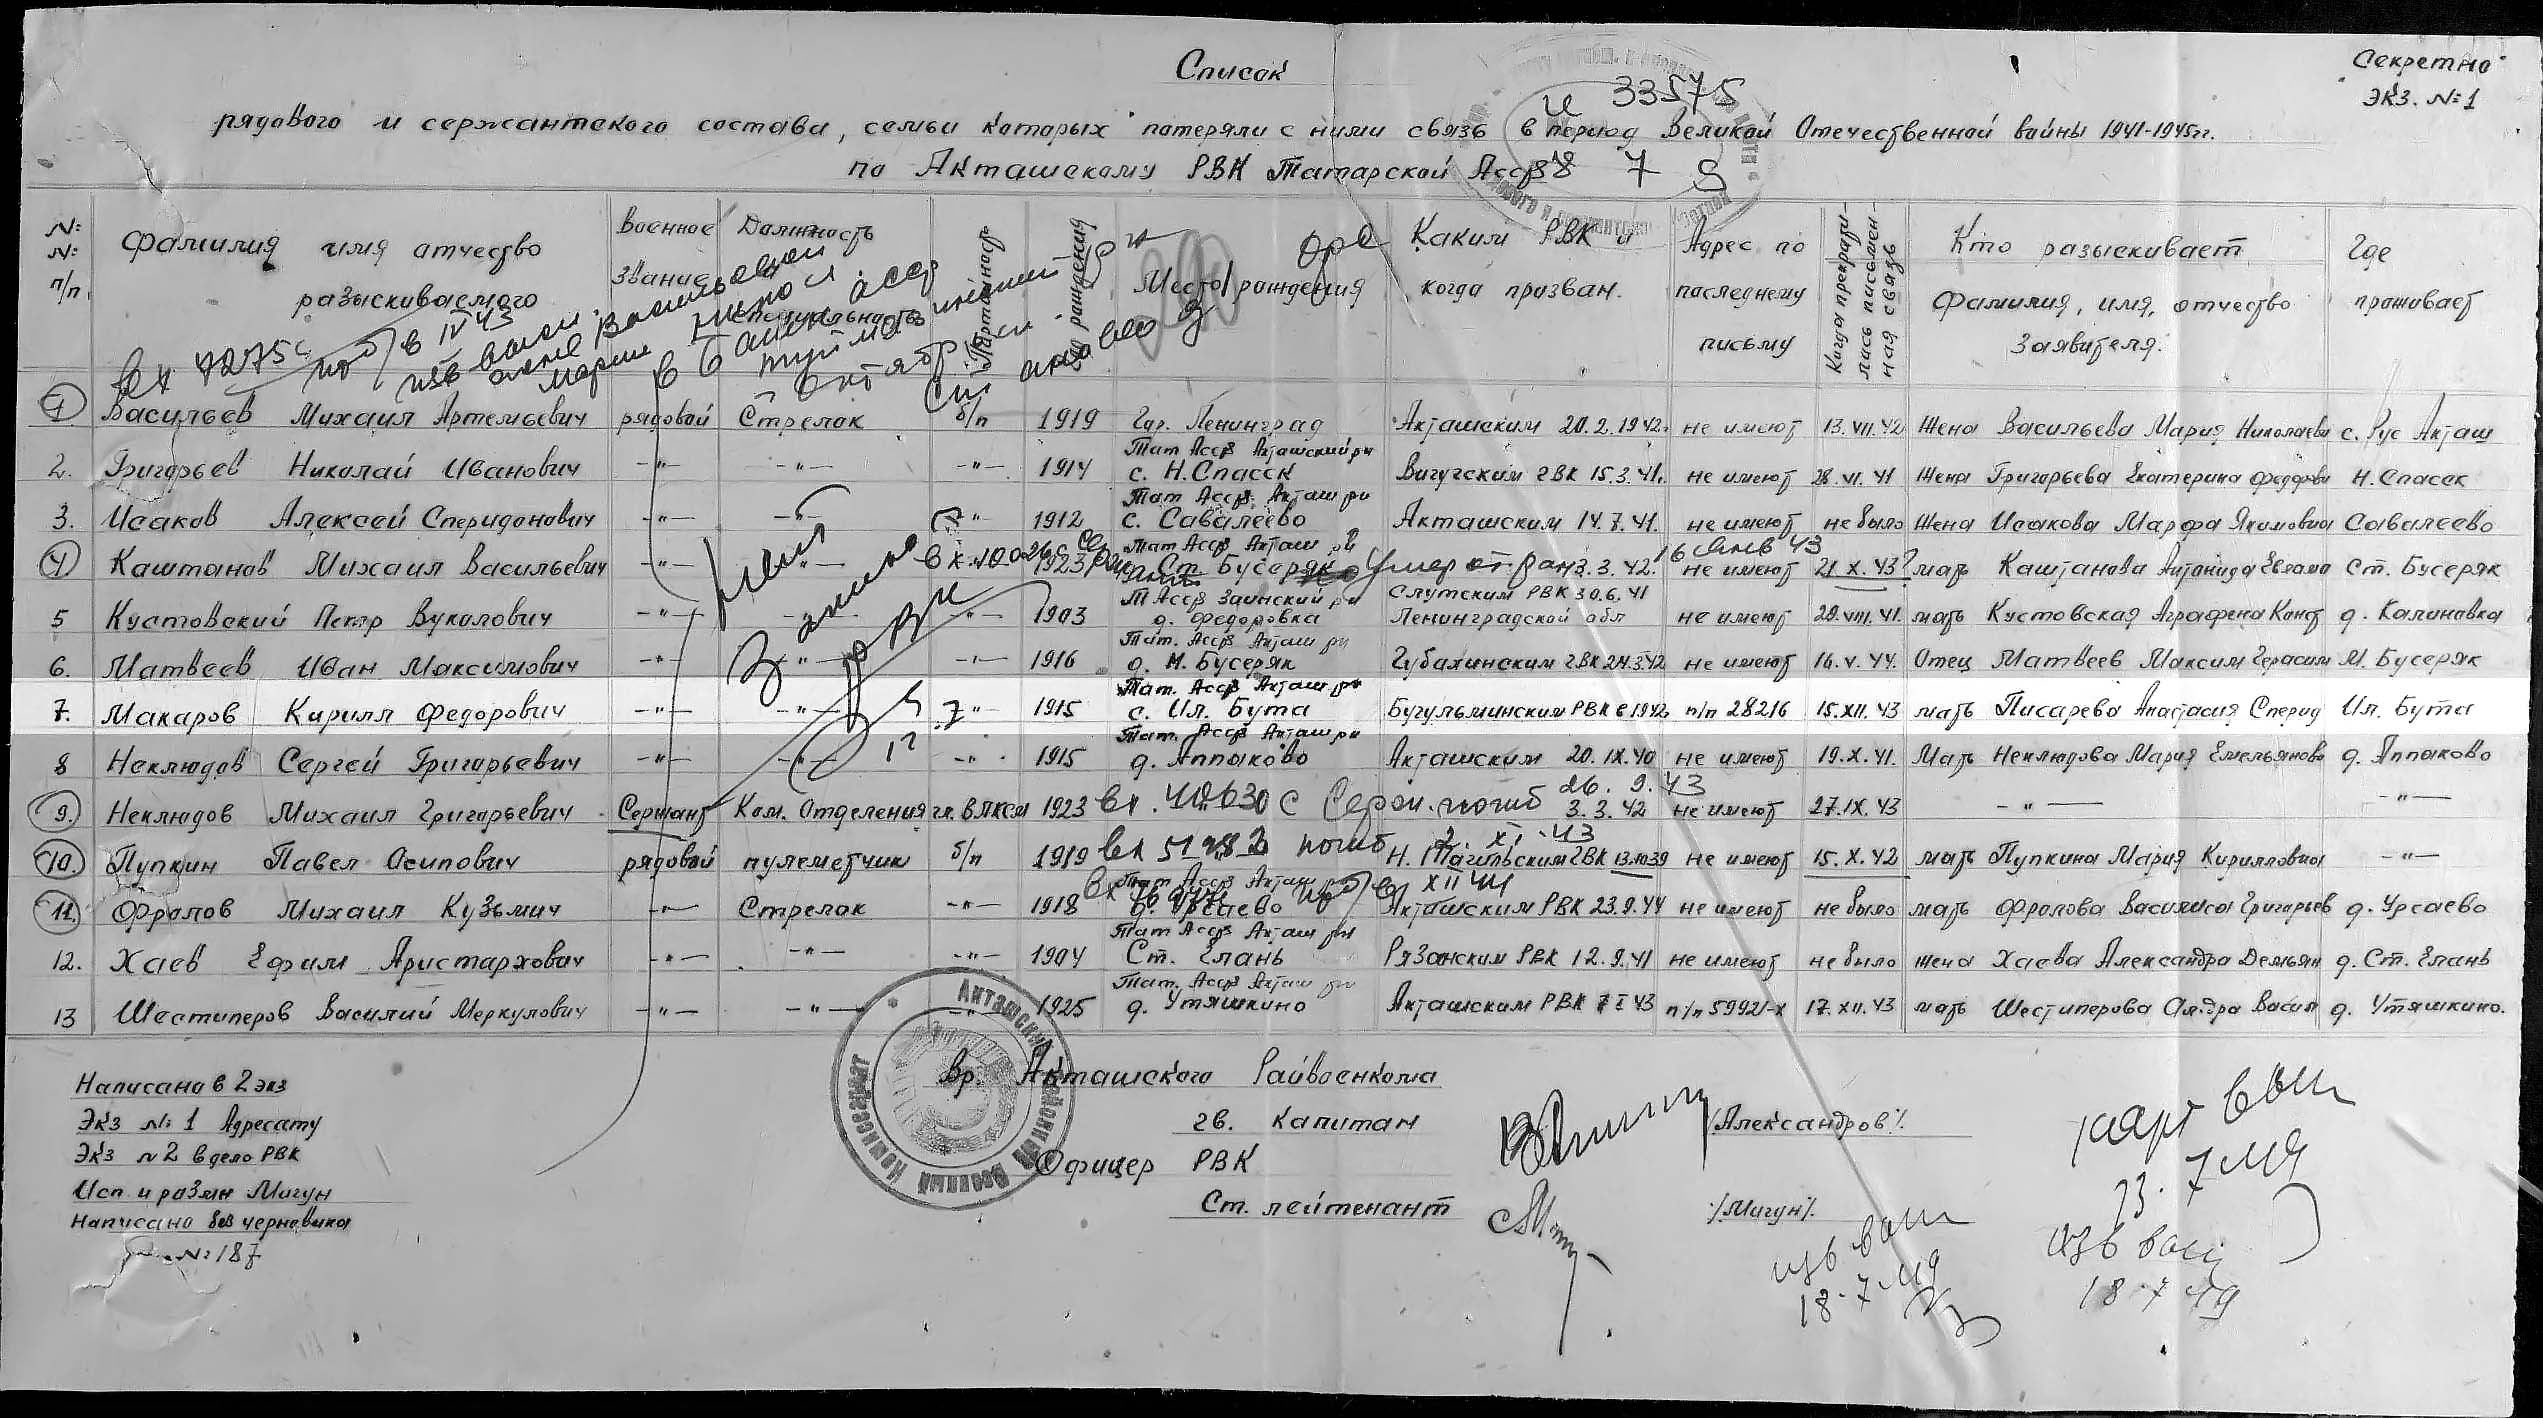 Секретно
Экз. №1
Список
и 33575
рядового и сержантского состава, семьи которых потеряли с ними связь в период Великой Отечественной войны 1941-1945гг.
по Акташскому РВК Татарской Асср
№ № п/п
Фамилия имя отчество разыскиваемого
Военное звание
Должность специальность
Партийность
рождения
Место рождения
Каким РВК и когда призван.
Адрес по последнему письму
Когда прекратилась письменная связь
Кто разыскивает Фамилия, имя, отчество Заявителя.
Где проживает
1 Васильев Михаил Артемьевич рядовой Стрелок б/п 1919 Гор. Ленинград Акташским 20.2.1942. не имеют 13.VII.42 Жена Васильева Мария Николаевн с. Рус Акташ
Тат Асср Акташский рн
2. Григорьев Николай Иванович -"- -"- -"- 1914 с. Н.Спасск ГВК 15.3.41. не имеют 28.VI.41 Жена Григорьева Екатерина Федоровн Н. Спасск
Тат Асср Акташ рн
3. Исаков Алексей Спиридонович -"- -"- -"- 1912 с. Савалеево Акташским 14.7.41. не имеют не было Жена Исакова Марфа Якимовна Савалеево
Тат Асср Акташ рн
4 Каштанов Михаил Васильевич -"- -"- 1923 Ст. Бусеряк Умер от ран 3.3.42. 16 янв 43 не имеют 21 X.43? мать Каштанова Ст. Бусеряк
Т Асср Заинский рн Слутским РВК 30.6.41
5 Кустовский Петр Вуколович -"- -"- 1903 д. Федоровка Ленинградской обл не имеют 20.VIII.41. мать Кустовская Аграфена Конст д. Калиновка
Тат. Асср Акташ рн
6. Матвеев Иван Максимович -"- -"- -"- 1916 д. М. Бусеряк Губахинским ГВК не имеют 16.V.44. Отец Матвеев Максим Герасим М. Бусеряк
Тат. Асср Акташ рн
7. Макаров Кирилл Федорович -"- -"- -"- 1915 с. Ил. Бута Бугульминским РВК в 1942 п/п 28216 15.XII.43 мать Писарева Анастасия Сперид Ил. Бута
Тат. Асср Акташ рн
8 Неклюдов Сергей Григорьевич -"- -"- -"- 1915 д. Аппаково Акташским 20.IX.40 не имеют 19.X.41. Мать Неклюдова Мария Емельяновн д. Аппаково
9. Неклюдов Михаил Григорьевич Сержант Ком. Отделения чл. ВЛКСМ 1923 вх. 40630 с погиб 26.9.43 3.3.42 не имеют 27.IX.43 -"- -"-
10. Пупкин Павел Осипович рядовой пулеметчик б/п 1919 вх погиб XI.43 Н. Тагильским ГВК 13.10.39 не имеют 15.X.42 мать Пупкина Мария Кирилловна -"-
Тат Асср Акташ
11. Фролов Михаил Кузьмич -"- Стрелок -"- 1918 д. Урсаево XII 41 Акташским РВК 23.9.44 не имеют не было мать Фролова Василиса Григорьев д. Урсаево
Тат Асср Акташ рн
12. Хаев Ефим Аристархович -"- -"- -"- 1904 Ст. Елань Рязанским РВК 12.9.41 не имеют не было жена Хаева Александра Демьян д. Ст. Елань
Тат. Асср Акташ рн
13 Шестиперов Василий Меркулович -"- -"- -"- 1925 д. Утяшкино Акташским РВК 7 I 43 п/п 59921-х 17.XII.43 мать Шестиперова Ал-дра Васил д. Утяшкино.
Написано в 2 экз
Экз №1 Адресату
Экз №2 в дело РВК
Исп. и разм Мигун
Написано без черновика
№187
Вр. Акташского Райвоенкома
гв. Капитан /Александров/.
Офицер РВК
Ст. лейтенант /Мигун/.
Акташский Районный Военный Комиссариат
изв вош
18.7.49
изв вош
18.7.49